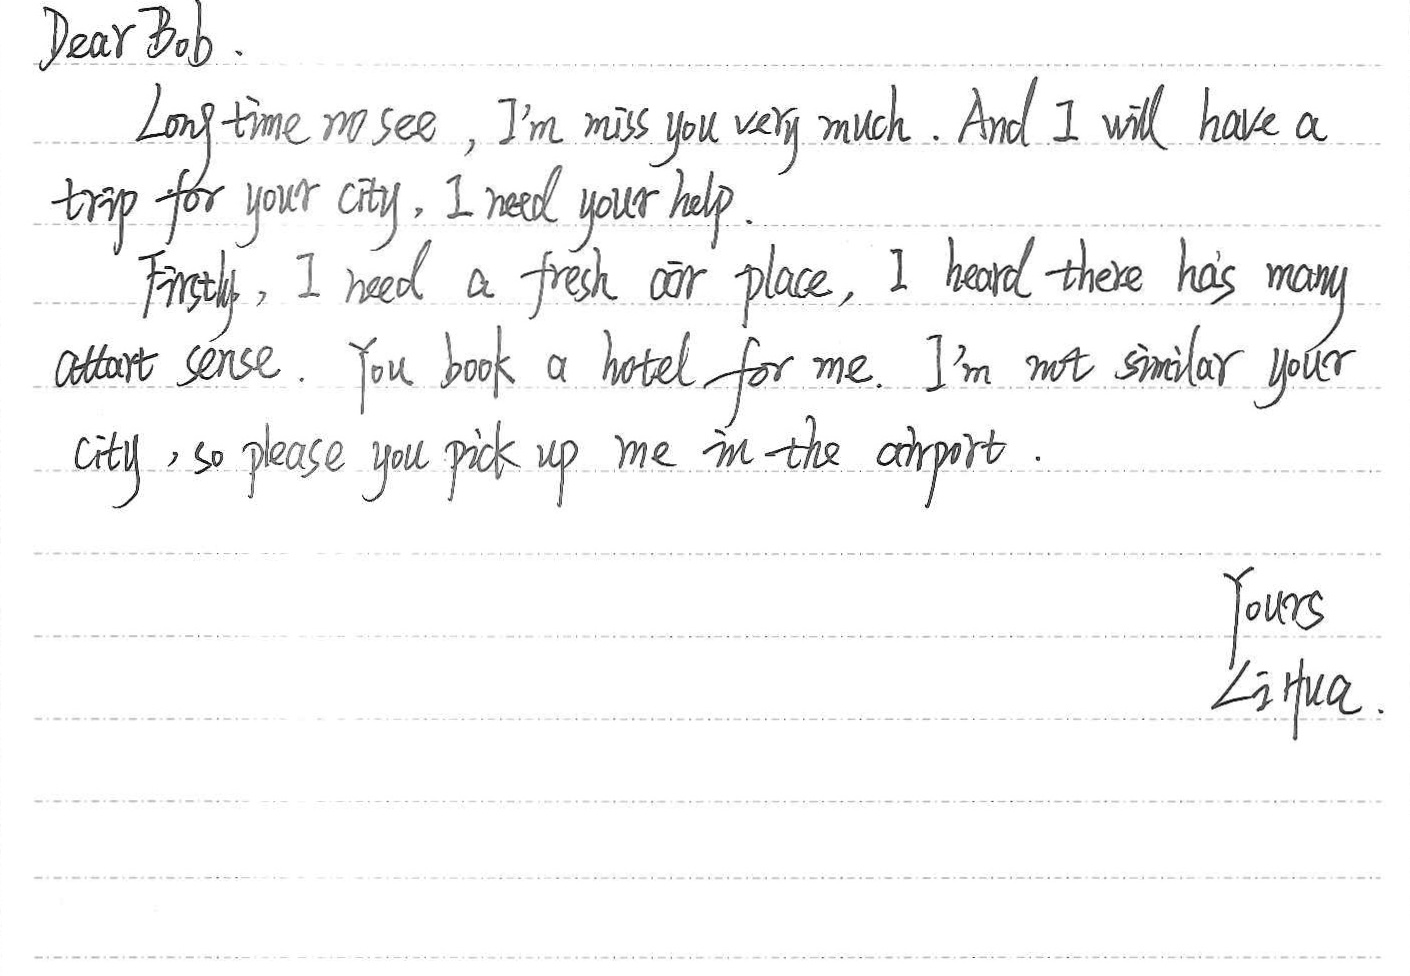 Dear Bob.
Long time no see, I'm miss you very much. And I will have a
trip for your city, I need your help.
Firstly, I need a fresh air place, I heard there has many
attart sense. You book a hotel for me. I'm not similar your
city, so please you pick up me in the airport.
Yours
Li Hua.